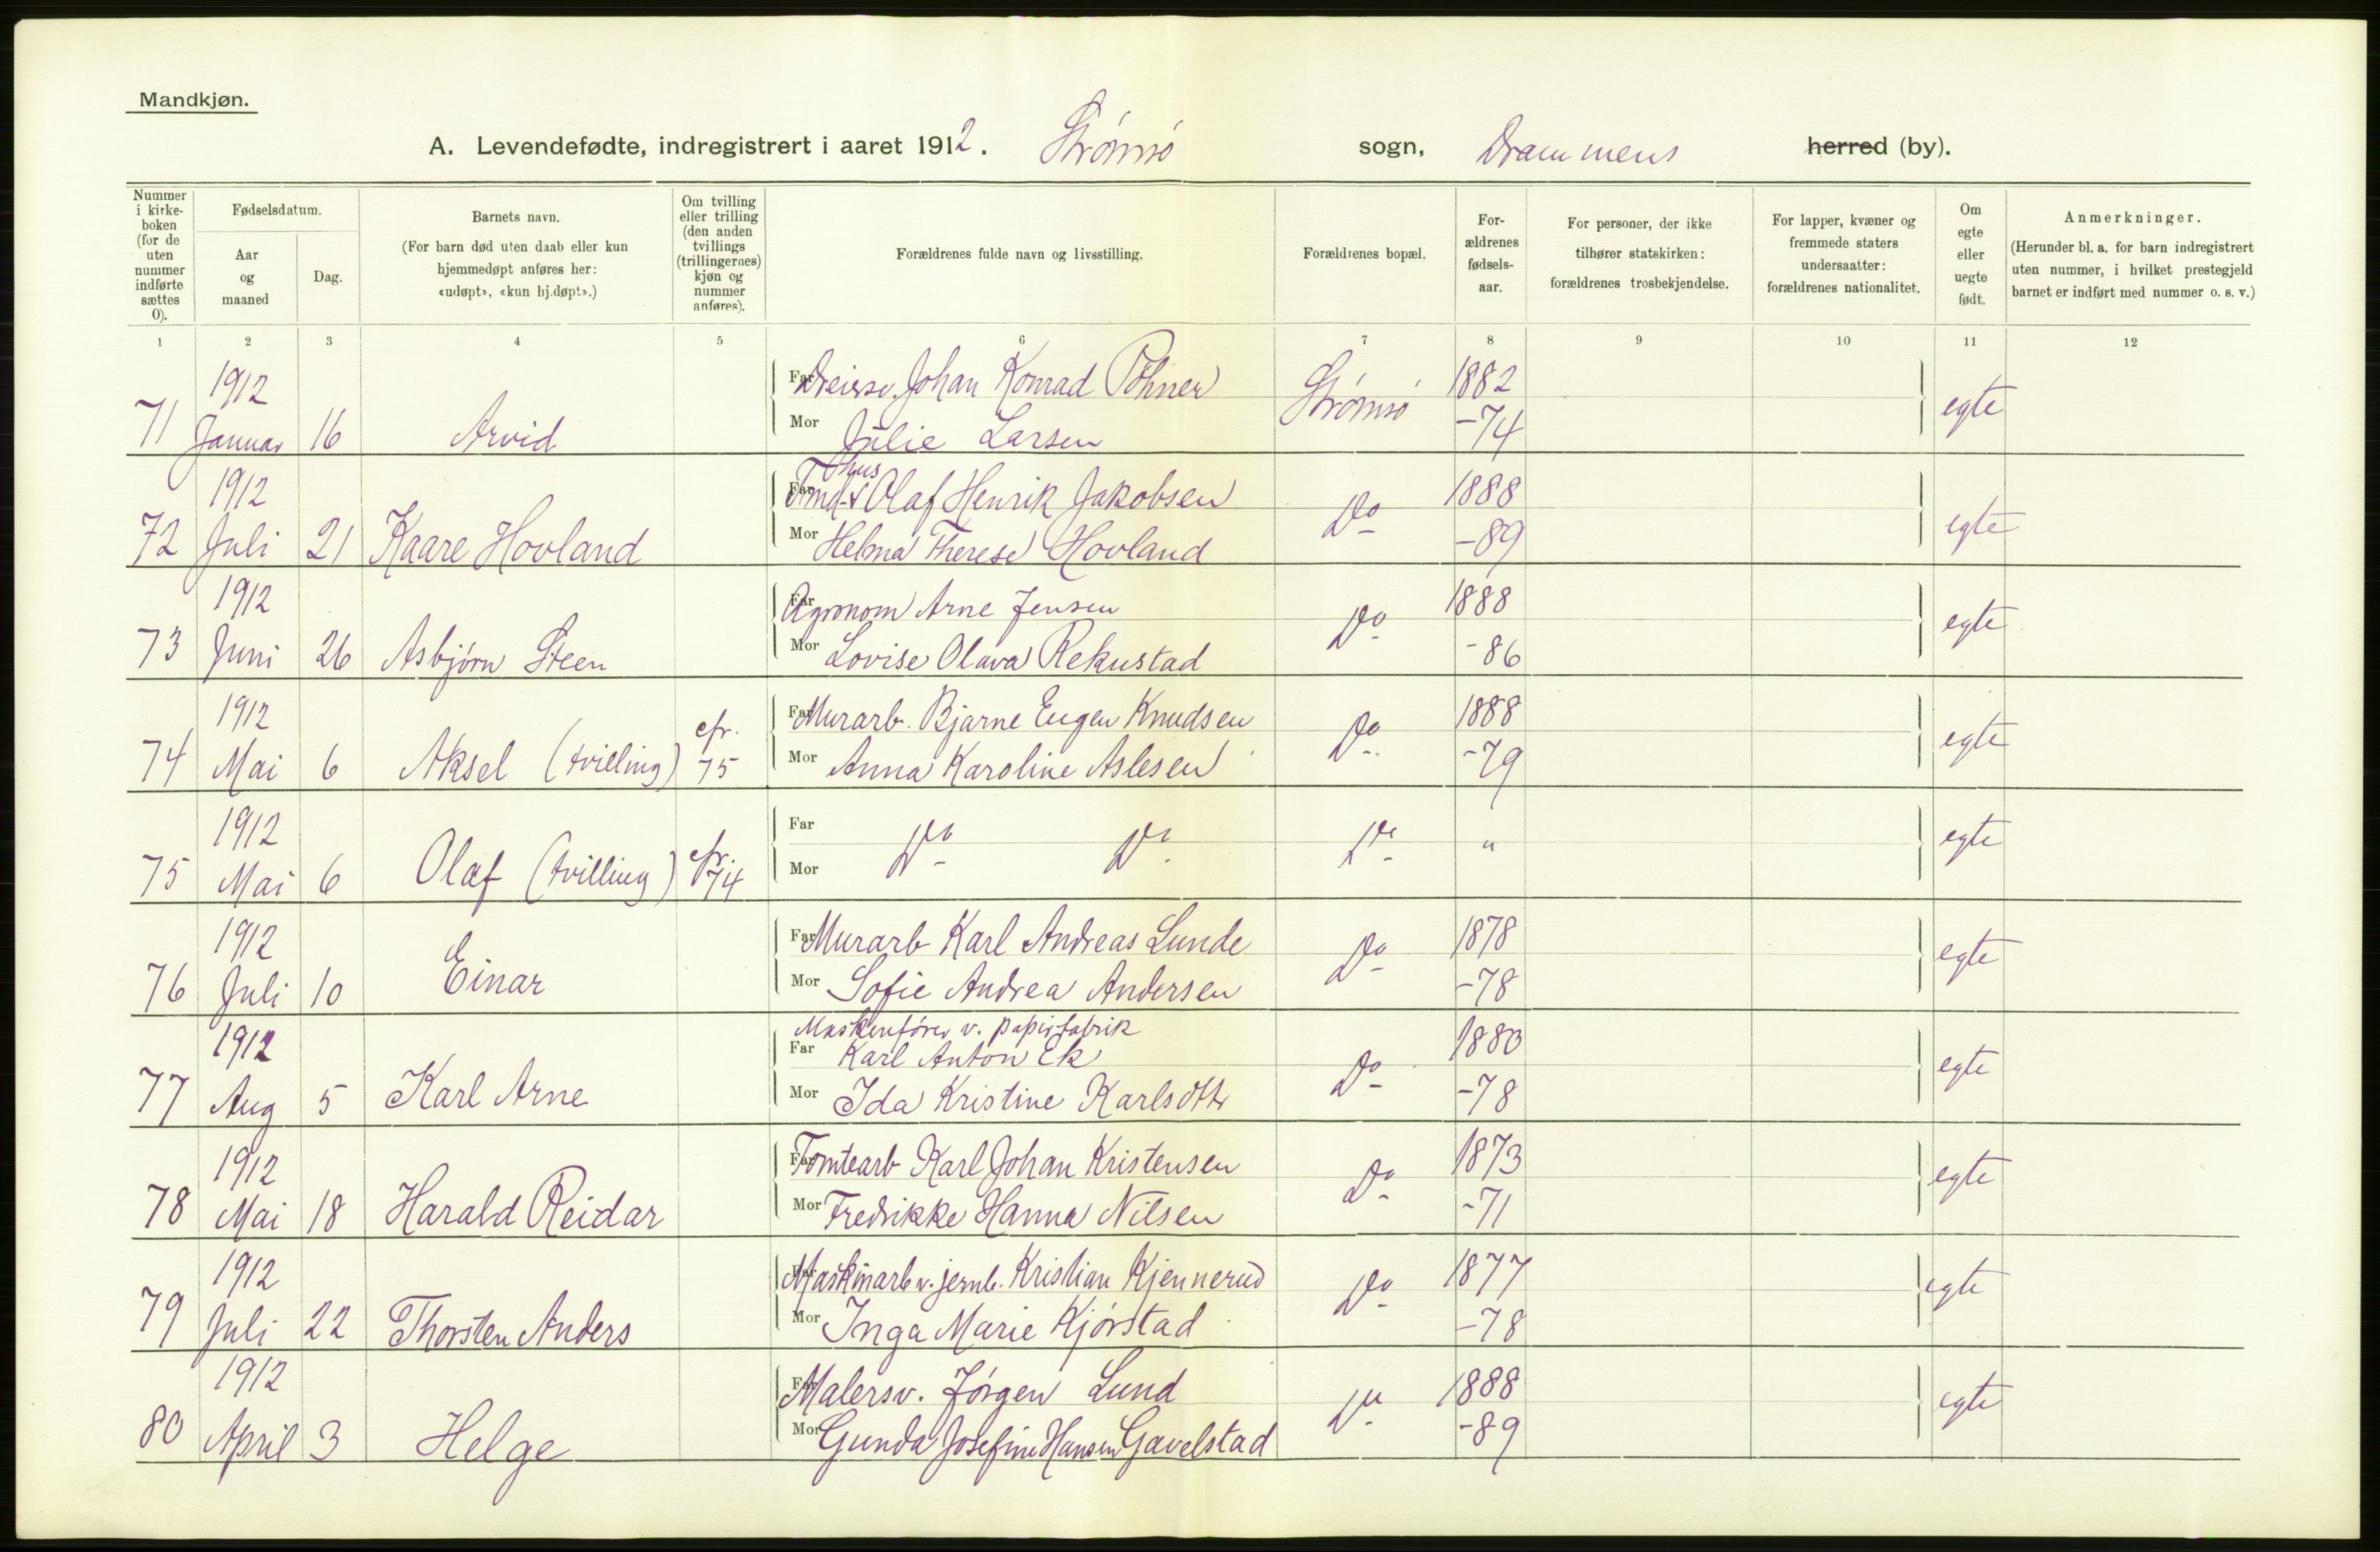 Mandkjøn.
A. Levendefødte, indregistrert i aaret 1912. Strømsø sogn, Drammens herred (by).
Nummer i kirke-boken (for de uten nummer indførte sættes 0).
Fødselsdatum.
Aar og maaned
Dag.
Barnets navn.
(For barn død uten daab eller kun hjemmedøpt anføres her: «udøpt», «kun hj.døpt».)
Om tvilling eller trilling (den anden tvillings (trillingernes) kjøn og nummer anføres).
Forældrenes fulde navn og livsstilling.
Forældrenes bopæl.
For-ældrenes fødsels-aar.
For personer, der ikke tilhører statskirken: forældrenes trosbekjendelse.
For lapper, kvæner og fremmede staters undersaatter: forældrenes nationalitet.
Om egte eller uegte født.
Anmerkninger.
(Herunder bl. a. for barn indregistrert uten nummer, i hvilket prestegjeld barnet er indført med nummer o. s. v.)
1 2 3 4 5 6 7 8 9 10 11 12
71 1912 Januar 16 Arvid Far Dreiersv. Johan Konrad Pöhner Strømsø 1882 egte
Mor Julie Larsen -74
72 1912 Juli 21 Kaare Hovland Far Olaf Henrik Jakobsen Do 1888 egte
Mor Helma Therese Hovland -89
73 1912 Juni 26 Asbjørn Steen Far Agronom Arne Jensen Do 1888 egte
Mor Lovise Olava Rekustad -86
74 1912 Mai 6 Aksel (tvilling) cfr. 75 Far Murarb. Bjarne Eugen Knudsen Do 1888 egte
Mor Anna Karoline Aslesen -79
75 1912 Mai 6 Olaf (tvilling) cfr. 74 Far Do Do Do " egte
Mor
76 1912 Juli 10 Einar Far Murarb Karl Andreas Lunde Do 1878 egte
Mor Sofie Andrea Andersen -78
77 1912 Aug 5 Karl Arne Maskenfører v. papirfabrik
Far Karl Anton Ek Do 1880 egte
Mor Ida Kristine Karlsdtr -78
78 1912 Mai 18 Harald Reidar Far Tomtearb Karl Johan Kristensen Do 1873 egte
Mor Fredrikke Hanna Nilsen -71
79 1912 Juli 22 Thorsten Anders Far Maskinarb v. jernb. Kristian Kjennerud Do 1877 egte
Mor Inga Marie Kjørstad -78
80 1912 April 3 Helge Far Malersv. Jørgen Lund Do 1888 egte
Mor Gunda Josefine Hansen Gavelstad -89